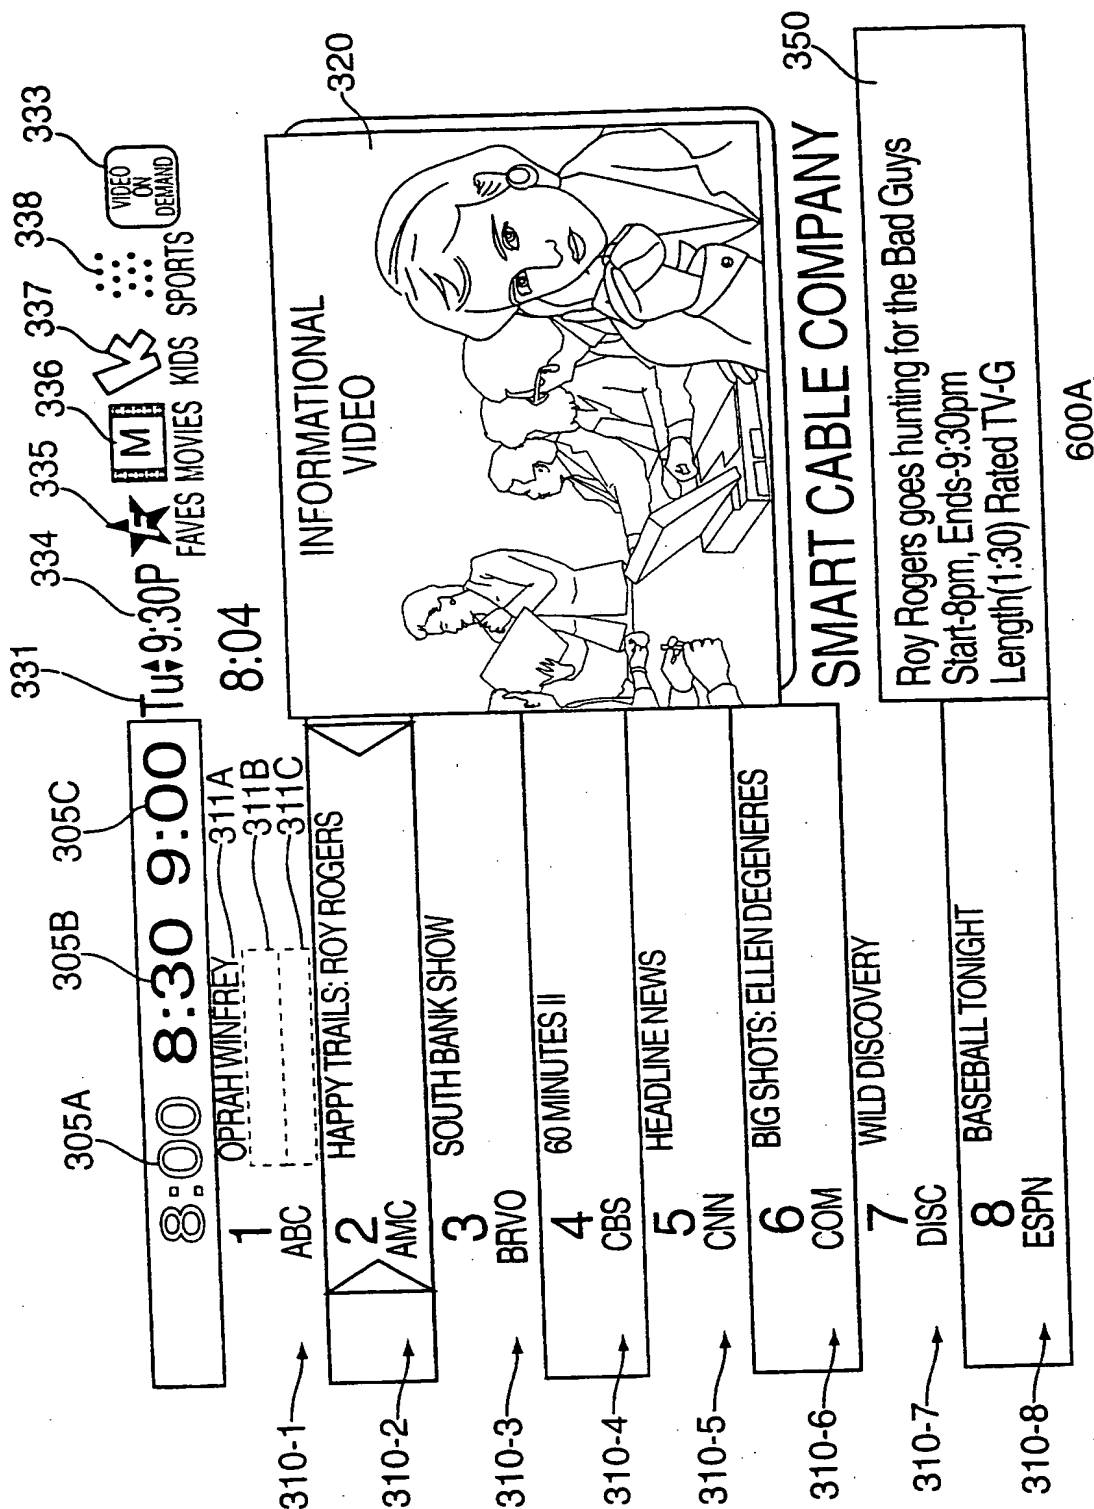 331
334
335
336
337
338
333
305A
305B
305C
8:00 8:30 9:00
Tu 9:30P
F
M
VIDEO
ON
DEMAND
FAVES MOVIES KIDS SPORTS
8:04
310-1
1
ABC
OPRAH WINFREY
311A
311B
311C
310-2
2
AMC
HAPPY TRAILS: ROY ROGERS
310-3
3
BRVO
SOUTH BANK SHOW
310-4
4
CBS
60 MINUTES II
310-5
5
CNN
HEADLINE NEWS
310-6
6
COM
BIG SHOTS: ELLEN DEGENERES
310-7
7
DISC
WILD DISCOVERY
310-8
8
ESPN
BASEBALL TONIGHT
INFORMATIONAL
VIDEO
320
SMART CABLE COMPANY
350
Roy Rogers goes hunting for the Bad Guys
Start-8pm, Ends-9:30pm
Length(1:30) Rated TV-G
600A